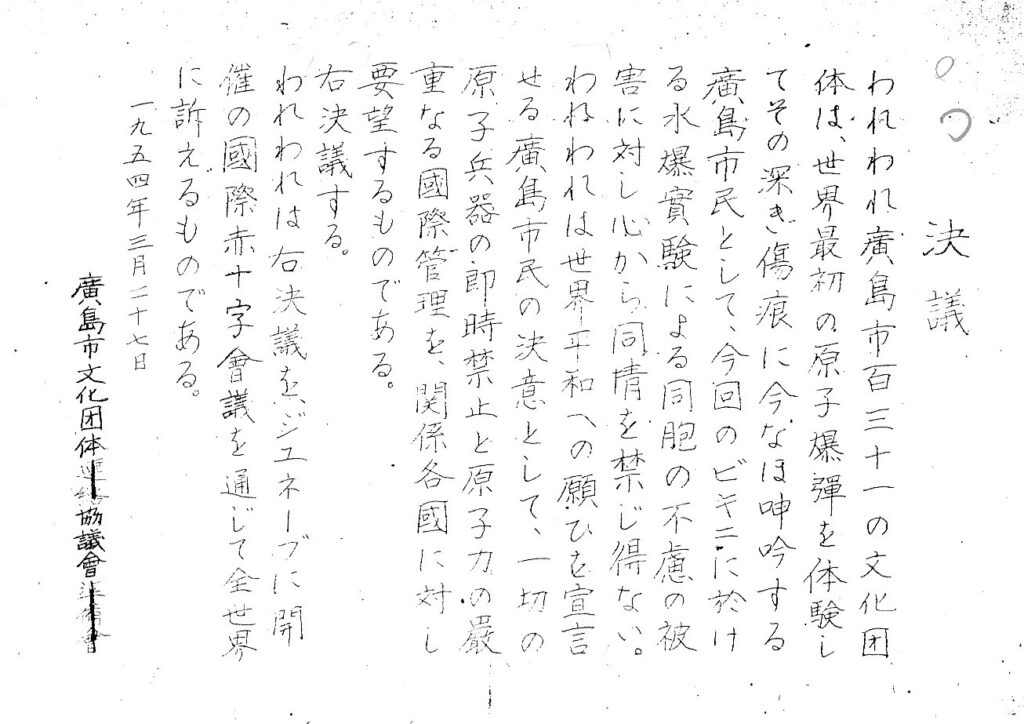 決議
われわれ廣島市百三十一の文化団
体は、世界最初の原子爆彈を体験し
てその深き傷痕に今なほ呻吟する
廣島市民として、今回のビキニに於け
る水爆實験による同胞の不慮の被
害に対し心から同情を禁じ得ない。
われわれは世界平和への願ひを宣言
せる廣島市民の決意として、一切の
原子兵器の即時禁止と原子力の嚴
重なる國際管理を、関係各國に対し
要望するものである。
右決議する。
われわれは右決議を、ジュネーブに開
催の國際赤十字會議を通じて全世界
に訴えるものである。
一九五四年三月二十七日
廣島市文化団体連絡協議會準備會